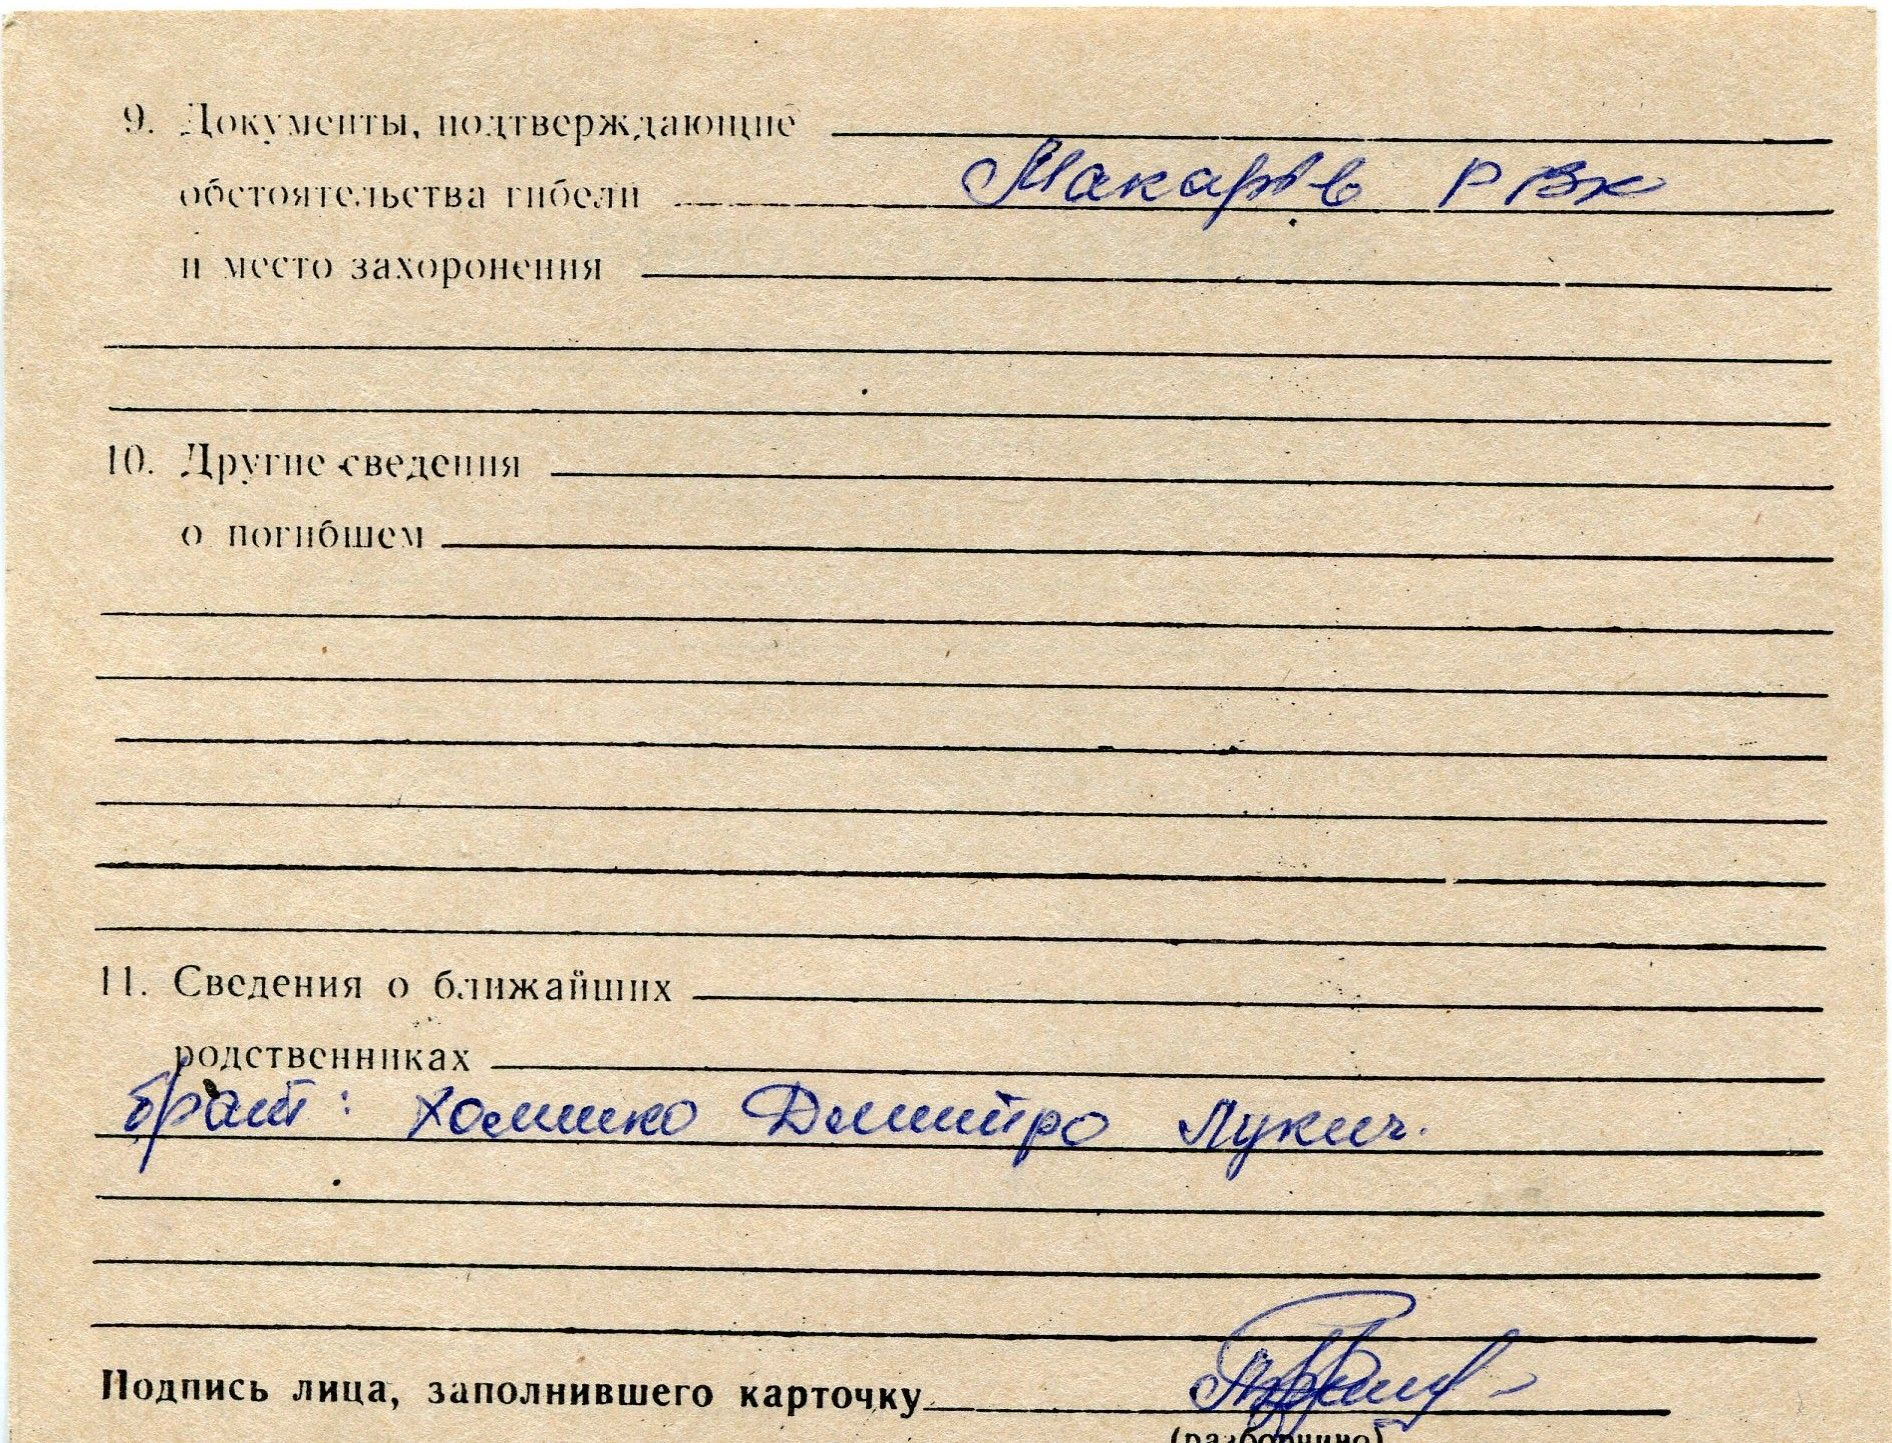 9. Документы, подтверждающие
обстоятельства гибели Макарів РВК
и место захоронения
10. Другие сведения
о погибшем
11. Сведения о ближайших
родственниках
брат: Хоменко Дмитро Лукич.
Подпись лица, заполнившего карточку
(разборчиво)